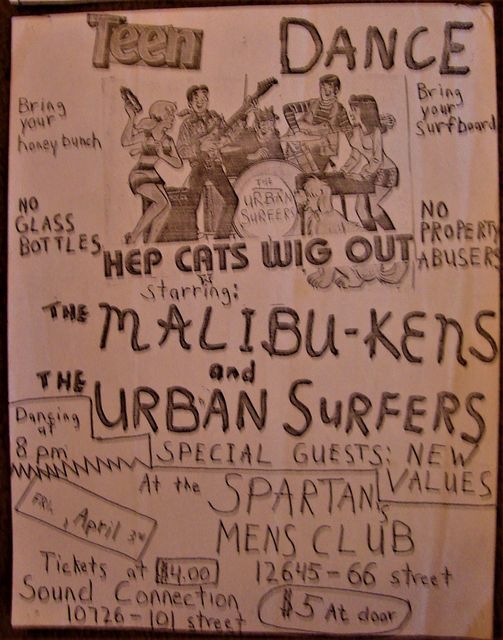 Teen DANCE
Bring your honey bunch
Bring your surfboard
THE URBAN SURFERS
NO GLASS BOTTLES
NO PROPERTY ABUSERS
HEP CATS WIG OUT
starring:
THE MALIBU-KENS
and
THE URBAN SURFERS
Dancing at 8 pm
SPECIAL GUESTS: NEW VALUES
At the SPARTANS MENS CLUB
Fri, April 3rd
12645-66 street
Tickets at $4.00
Sound Connection
10726-101 street
$5 At door